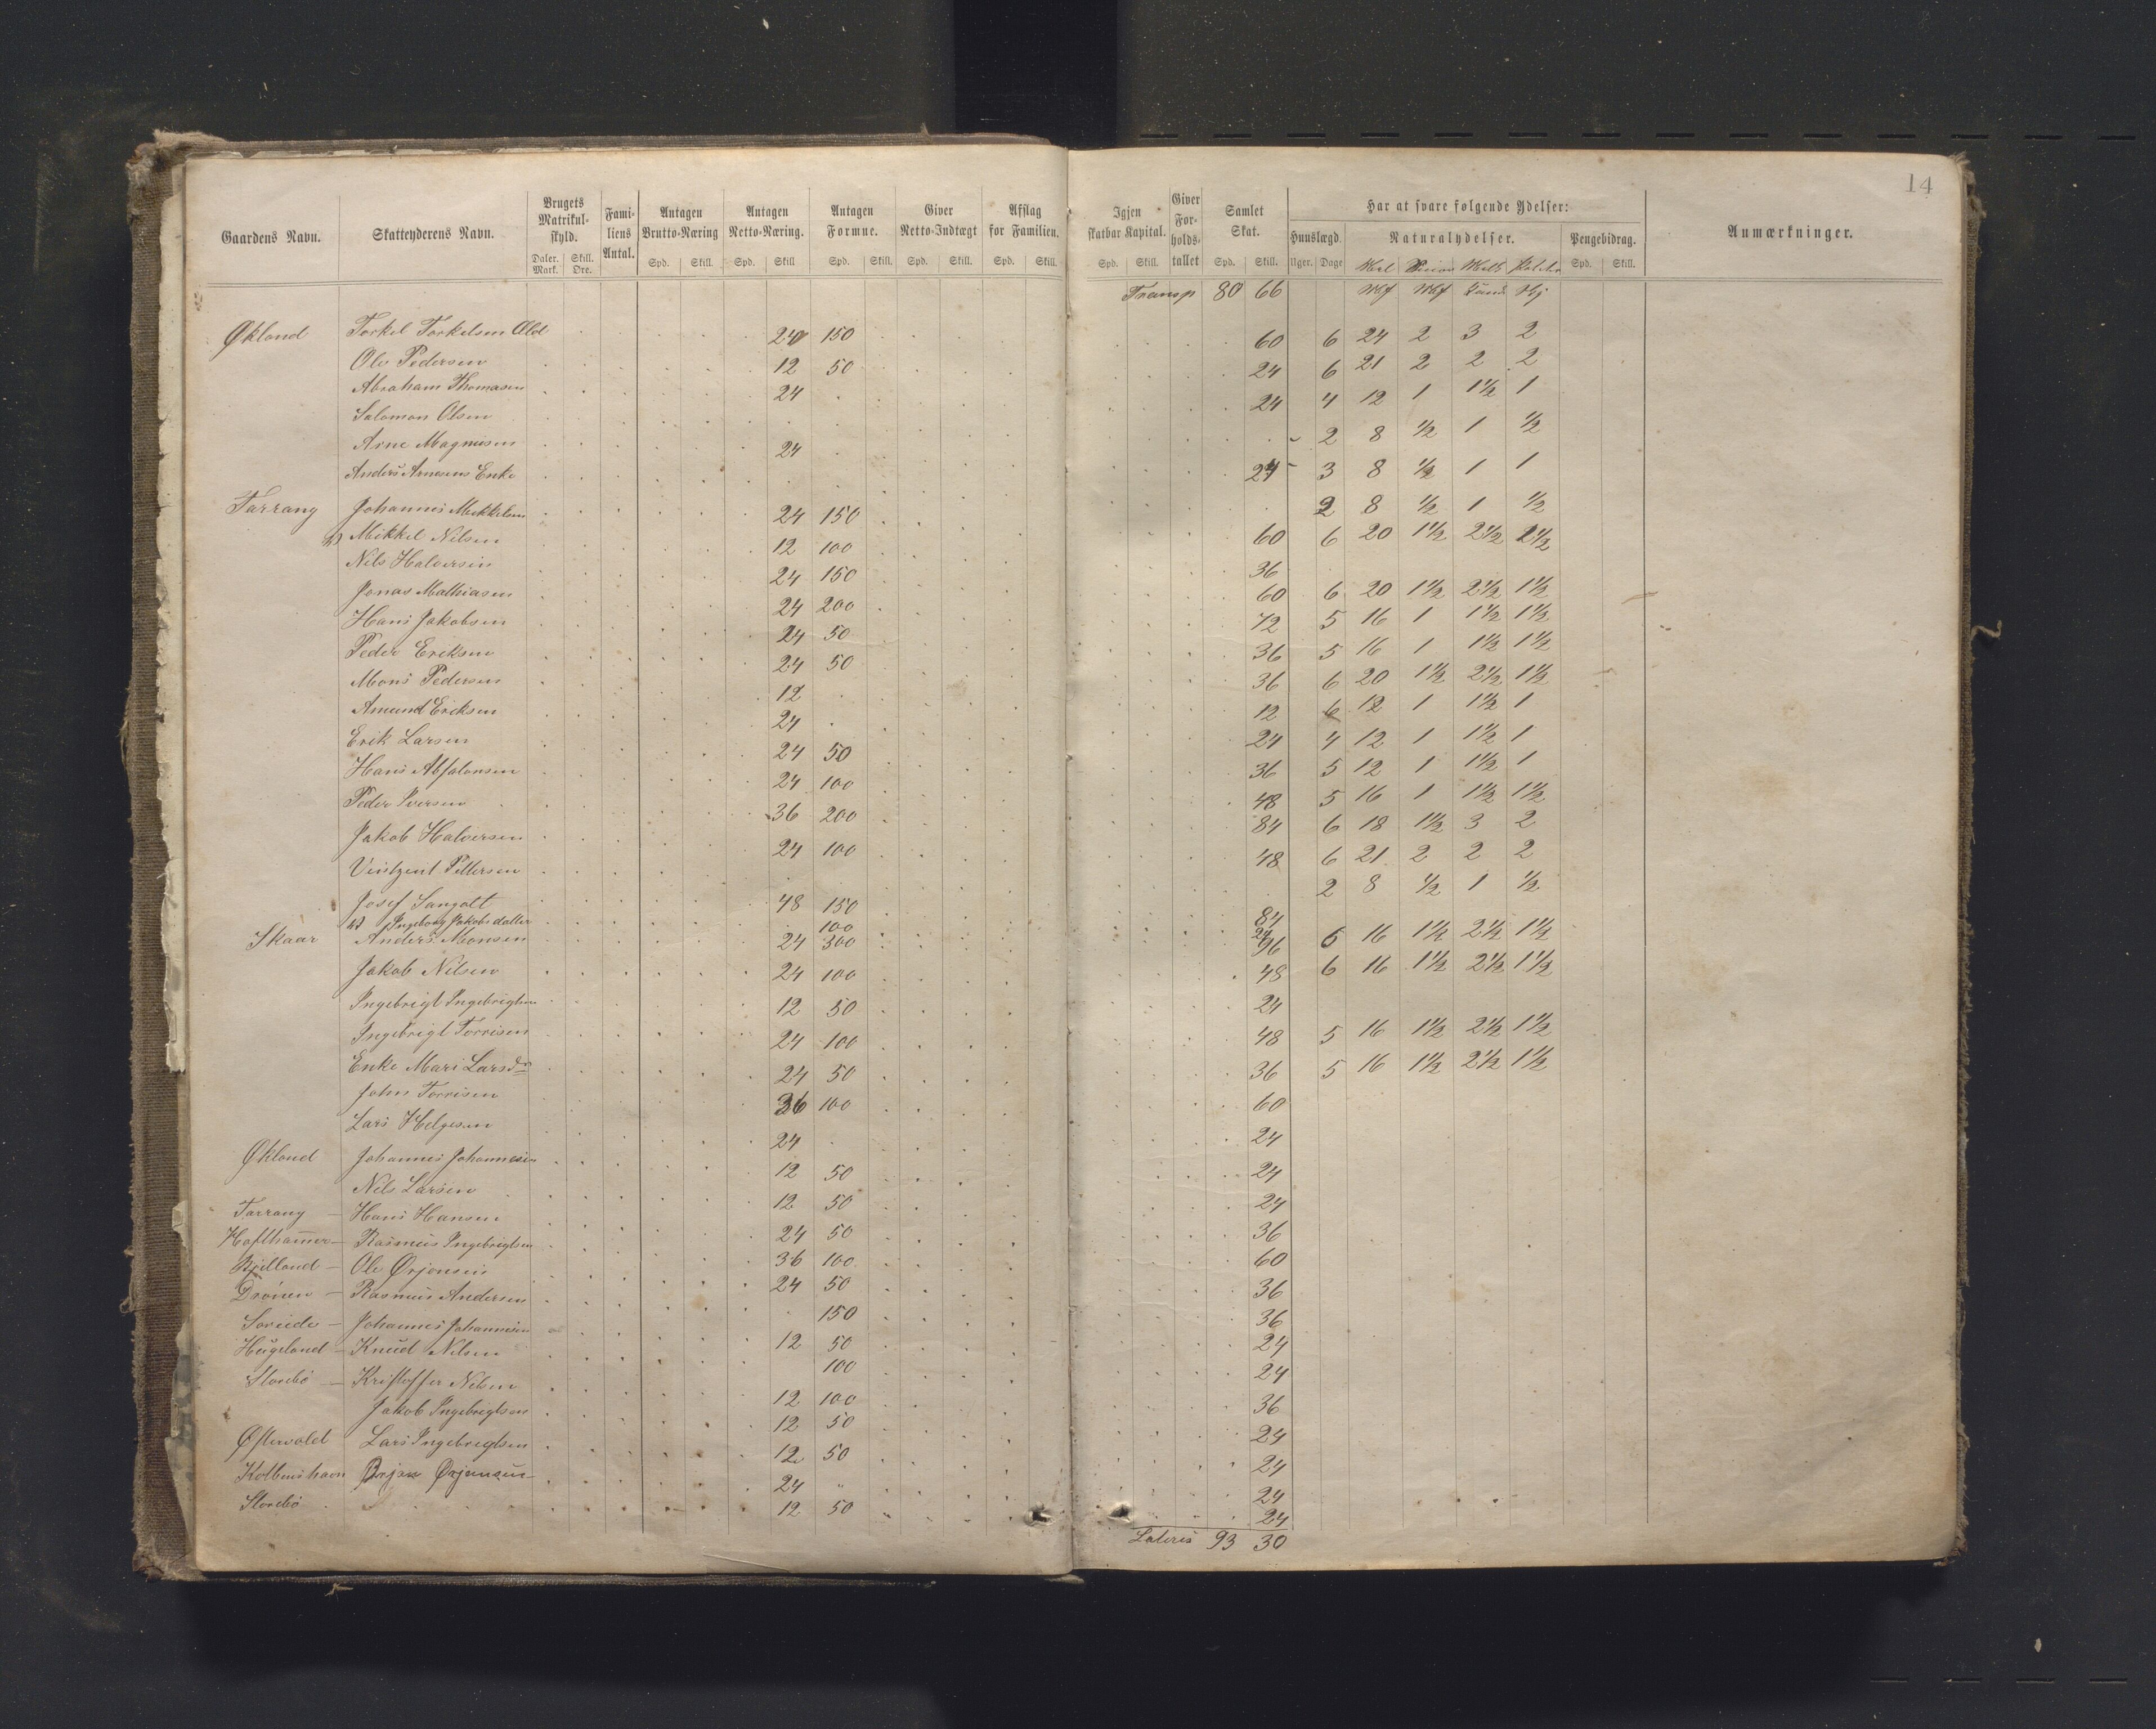 14
Gaardens Navn. Skatteyderens Navn. Brugets Matrikulskyld. Familiens Antal. Antagen Brutto-Næring Antagen Netto-Næring. Antagen Formue. Giver Netto-Indtægt Afslag for Familien. Igjen skatbar Kapital. Giver Forholdstallet Samlet Skat. Har at svare følgende Ydelser: Anmærkninger.
Huuslægd. Naturalydelser. Pengebidrag.
Daler. Mark. Skill. Øre. Spd. Skill. Spd. Skill Spd. Skill. Spd. Skill. Spd. Skill. Spd. Skill. Spd. Skill. Uger. Dage Spd. Skill.
Transp 80 66
Økland Torkel Torkelsen Æld 24 150 60 6 24 2 3 2
Ole Pedersen 12 50 24 6 21 2 2 2
Abraham Thomasen 24 24 4 12 1 1½ 1
Salomon Olsen 2 8 ½ 1 ½
Arne Magnusen 24 24 3 8 ½ 1 1
Anders Arnesens Enke 2 8 ½ 1 ½
Tarrang Johannes Mikkelsen 24 150 60 6 20 1½ 2½ 2½
Mikkel Nilsen 12 100 36
Nils Halversen 24 150 60 6 20 1½ 2½ 1½
Jonas Mathiasen 24 200 72 5 16 1 1½ 1½
Hans Jakobsen 24 50 36 5 16 1 1½ 1½
Peder Eriksen 24 50 36 6 20 1½ 2½ 1½
Mons Pedersen 12 12 6 12 1 1½ 1
Amund Ericksen 24 24 4 12 1 1½ 1
Erik Larsen 24 50 36 5 12 1 1½ 1
Hans Absalonsen 24 100 48 5 16 1 1½ 1½
Peder Iversen 36 200 84 6 18 1½ 3 2
Jakob Halversen 24 100 48 6 21 2 2 2
Vintzent Pettersen 2 8 ½ 1 ½
Josef Sangolt 48 150 84
Ingeborg Jakobsdatter 100 24
Skaar Anders Monsen 24 300 96 6 16 1½ 2½ 1½
Jakob Nilsen 24 100 48 6 16 1½ 2½ 1½
Ingebrigt Ingebrigtsen 12 50 24
Ingebrigt Torrisen 24 100 48 5 16 1½ 2½ 1½
Enke Mari Larsdr 24 50 36 5 16 1½ 2½ 1½
John Torrisen 36 100 60
Lars Helgesen 24 24
Økland Johannes Johannesen 12 50 24
Nils Larsen 12 50 24
Tarrang — Hans Hansen 24 50 36
Hafthammer — Rasmus Ingebrigtsen 36 100 60
Bjelland — Ole Ørjansen 24 50 36
Drönen — Rasmus Andersen 150 36
Söreide — Johannes Johannesen 12 50 24
Heugeland — Knud Nilsen 100 24
Storebö — Kristoffer Nilsen 12 100 36
Jakob Ingebrigtsen 12 50 24
Østervold Lars Ingebrigtsen 12 50 24
Kolbenshavn Ørjan Ørjansen 24 24
Storebö 12 50 24
Lateris 93 30